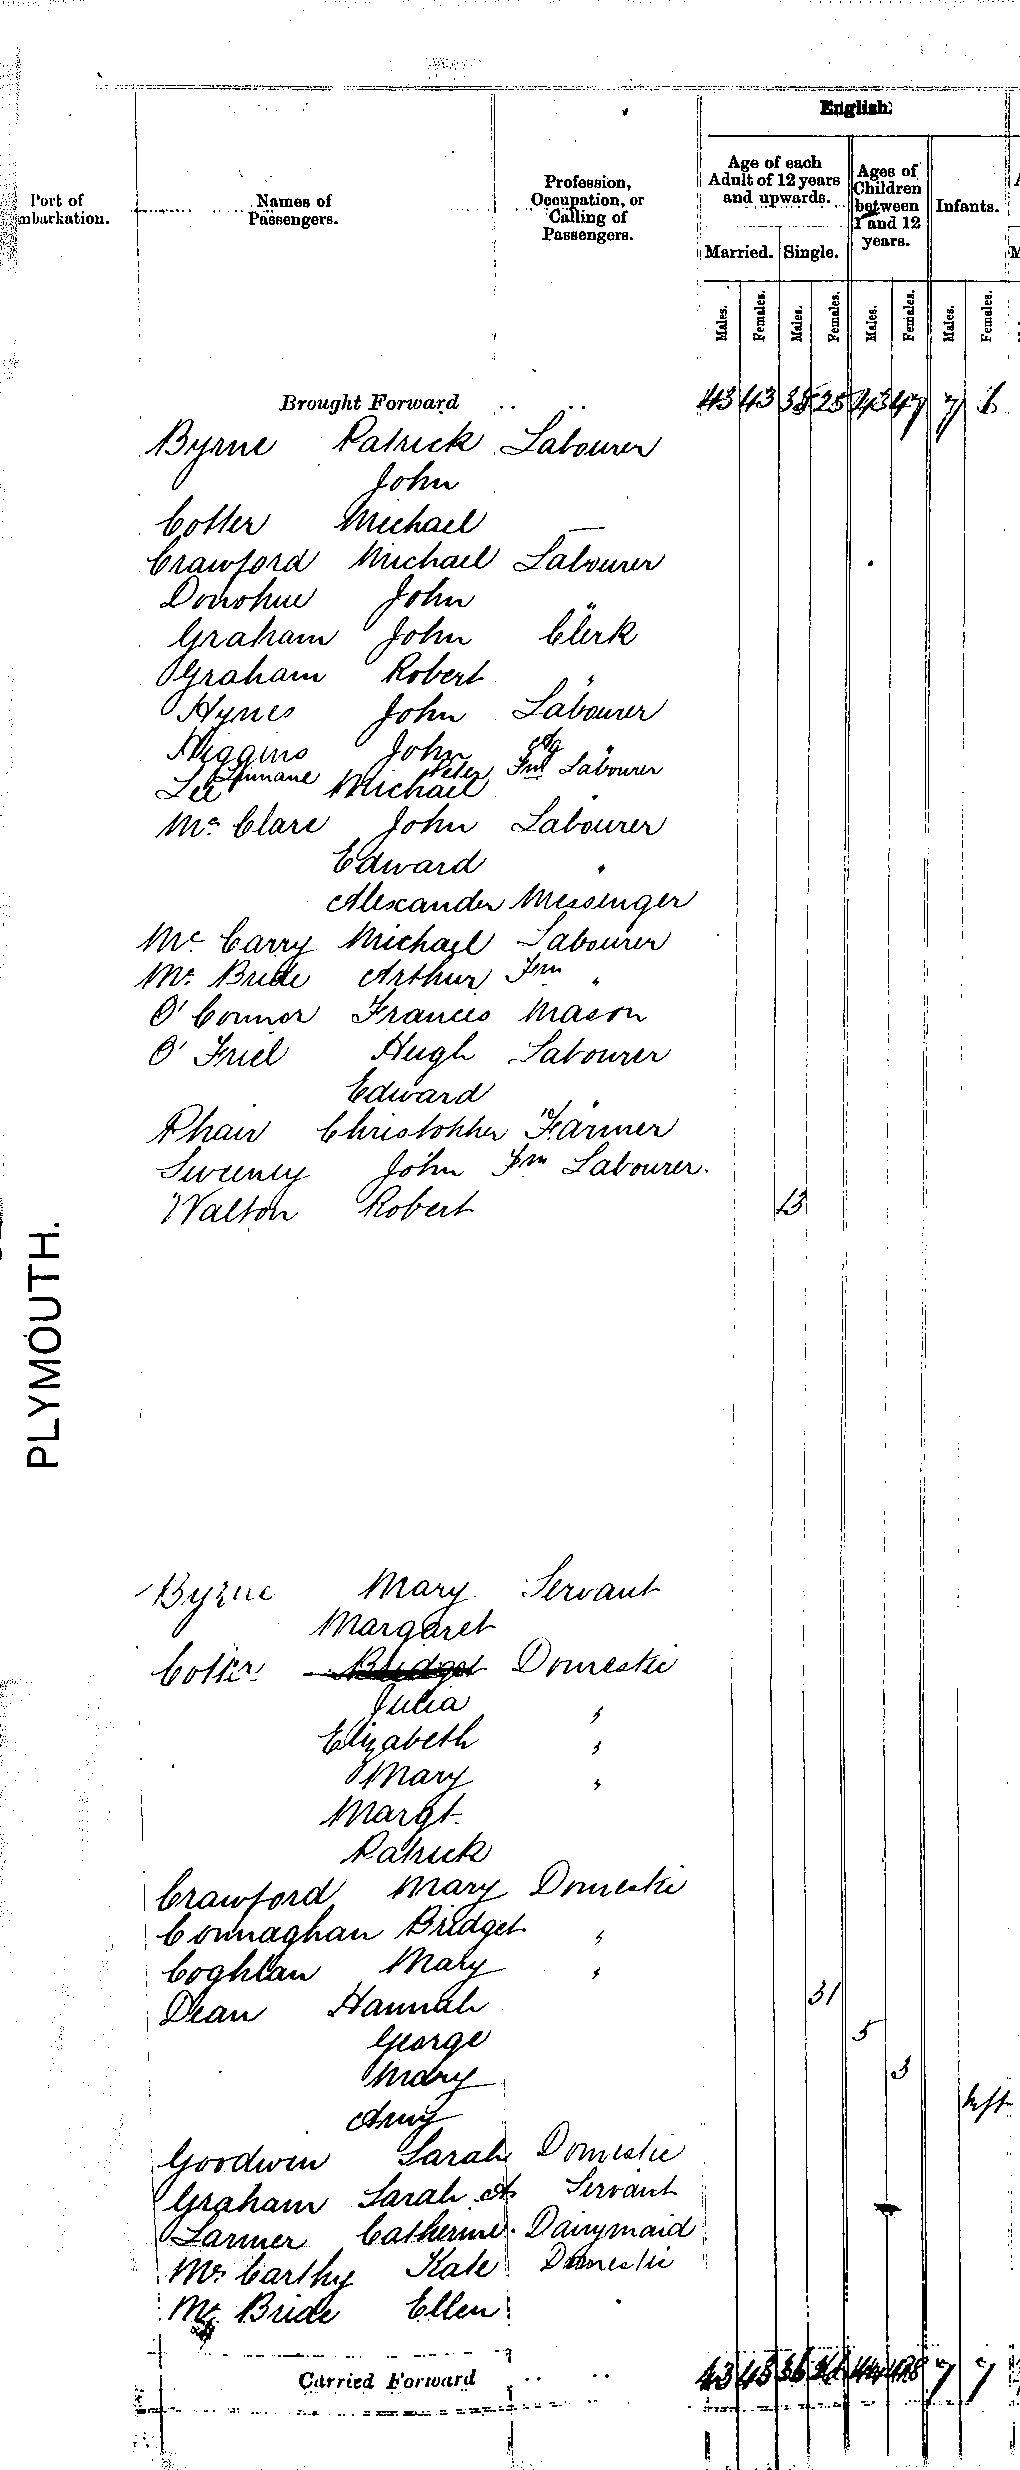 English.
Port of
mbarkation.
Names of
Passengers.
Profession,
Occupation, or
Calling of
Passengers.
Age of each
Adult of 12 years
and upwards.
Ages of
Children
between
1 and 12
years.
Infants.
Married. Single.
Males. Females. Males. Females. Males. Females. Males. Females.
Brought Forward .. .. 43 43 35 25 43 47 7 6
Byrne Patrick Labourer
John
Cotter Michael —
Crawford Michael Labourer
Donohue John "
Graham John Clerk
Graham Robert "
Hynes John Labourer
Higgins John
Linnane Peter Labourer
Lee Michael "
Mc Clare John Labourer
Edward "
Alexander Messenger
Mc Carry Michael Labourer
Mc Bride Arthur Fm "
O' Connor Frances Mason
O' Friel Hugh Labourer
Edward "
Phair Christopher Farmer
Sweeney John Fm Labourer.
Walton Robert 13
PLYMOUTH.
Byrne Mary Servant
Margaret
Cotter Bridget Domestic
Julia "
Elizabeth "
Mary "
Margt.
Patrick
Crawford Mary Domestic
Connaghan Bridget "
Coghlan Mary "
Dean Hannah 31
George 5
Mary 3
Amy
Goodwin Sarah Domestic
Graham Sarah A Servant
Larmer Catherine Dairymaid
Mc Carthy Kate Domestic
Mc Bride Ellen "
Carried Forward .. .. 43 43 36 26 44 48 7 7